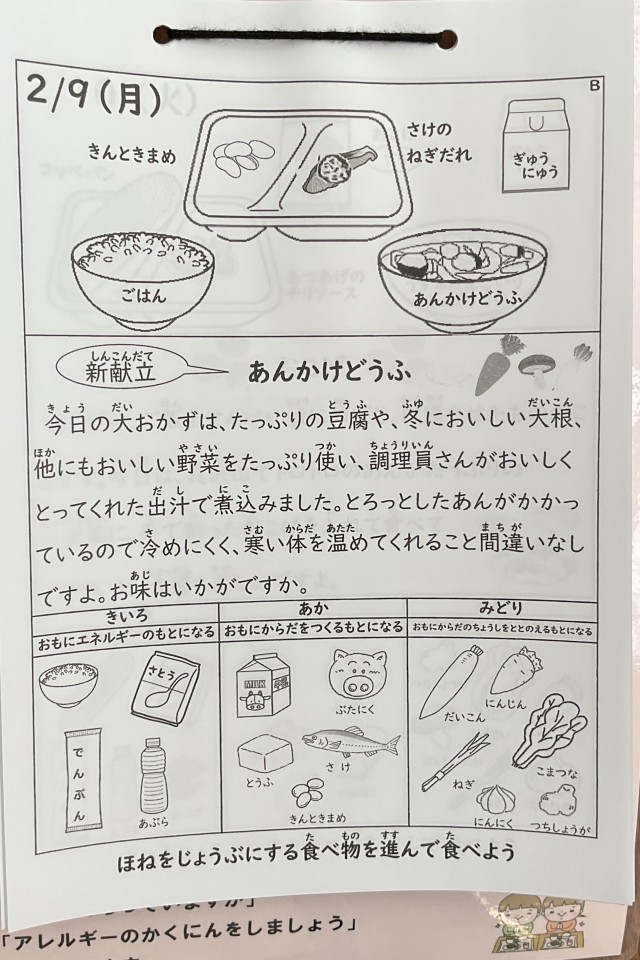 2/9(月)
B
きんときまめ
さけの
ねぎだれ
ぎゅう
にゅう
ごはん
あんかけどうふ
しんこんだて
新献立
あんかけどうふ
きょう だい とうふ ふゆ だいこん
今日の大おかずは、たっぷりの豆腐や、冬においしい大根、
ほか やさい つか ちょうりいん
他にもおいしい野菜をたっぷり使い、調理員さんがおいしく
だし にこ
とってくれた出汁で煮込みました。とろっとしたあんがかかっ
さ さむ からだ あたた まちが
ているので冷めにくく、寒い体を温めてくれること間違いなし
あじ
ですよ。お味はいかがですか。
きいろ
おもにエネルギーのもとになる
さとう
でんぷん
あぶら
あか
おもにからだをつくるもとになる
MILK
ぶたにく
とうふ
さけ
きんときまめ
みどり
おもにからだのちょうしをととのえるもとになる
だいこん
にんじん
こまつな
ねぎ
にんにく
つちしょうが
た もの すす た
ほねをじょうぶにする食べ物を進んで食べよう
「アレルギーのかくにんをしましょう」